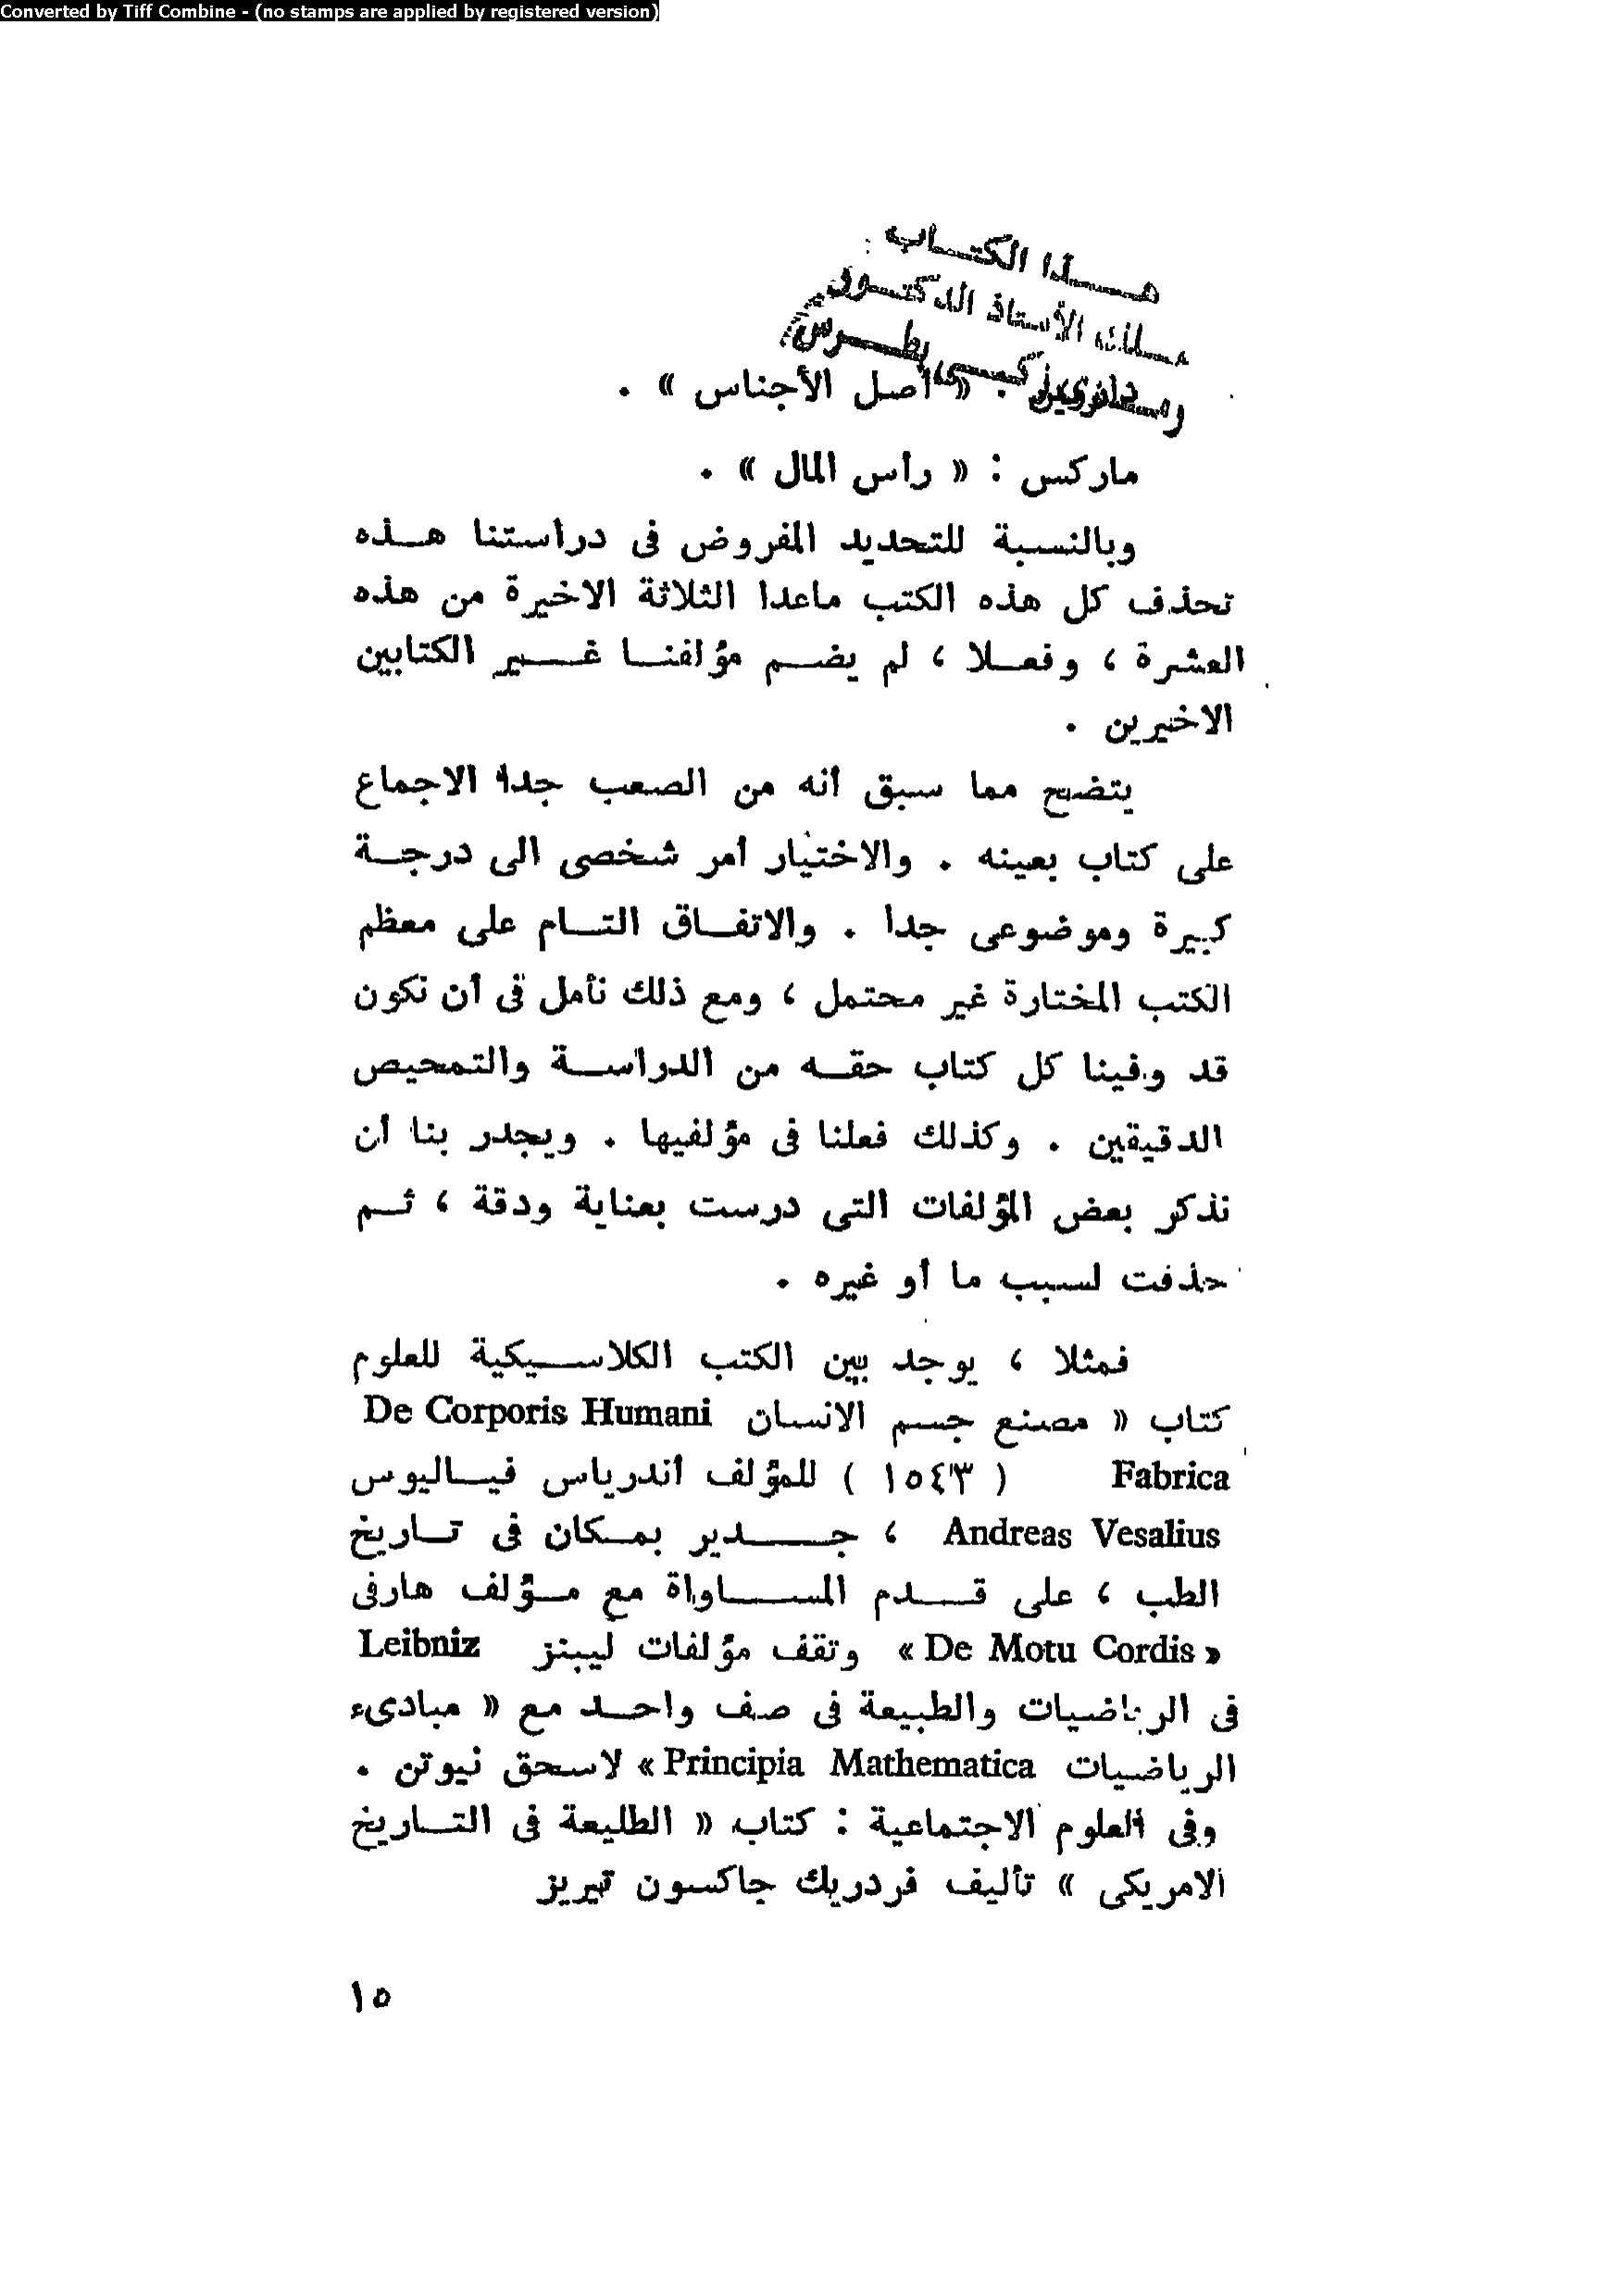 Converted by Tiff Combine - (no stamps are applied by registered version)
هـــذا الكتــاب :
ملك الأستاذ الدكتـور
رمــزى زكــى بطــرس
داروين : « أصل الأجناس » .
ماركس : « رأس المال » .
وبالنسبة للتحديد المفروض فى دراستنا هـذه
تحذف كل هذه الكتب ماعدا الثلاثة الاخيرة من هذه
العشرة ، وفعـلا ، لم يضـم مؤلفنـا غـير الكتابين
الاخيرين .
يتضح مما سبق أنه من الصعب جدا الاجماع
على كتاب بعينه . والاختيار أمر شخصى الى درجـة
كبيرة وموضوعى جدا . والاتفـاق التـام على معظم
الكتب المختارة غير محتمل ، ومع ذلك نأمل فى أن نكون
قد وفينا كل كتاب حقـه من الدراسـة والتمحيص
الدقيقين . وكذلك فعلنا فى مؤلفيها . ويجدر بنا أن
نذكر بعض المؤلفات التى درست بعناية ودقة ، ثـم
حذفت لسبب ما أو غيره .
فمثلا ، يوجد بين الكتب الكلاسـيكية للعلوم
كتاب « مصنع جسم الانسان De Corporis Humani
Fabrica ( ١٥٤٣ ) للمؤلف أندرياس فيـاليوس
Andreas Vesalius ، جـــدير بمـكان فى تـاريخ
الطب ، على قـدم المسـاواة مع مـؤلف هارفى
« De Motu Cordis » وتقف مؤلفات ليبنز Leibniz
فى الرياضيات والطبيعة فى صف واحـد مع « مبادىء
الرياضيات Principia Mathematica » لاسحق نيوتن .
وفى العلوم الاجتماعية : كتاب « الطليعة فى التـاريخ
الامريكى » تأليف فردريك جاكسون تيريز
١٥